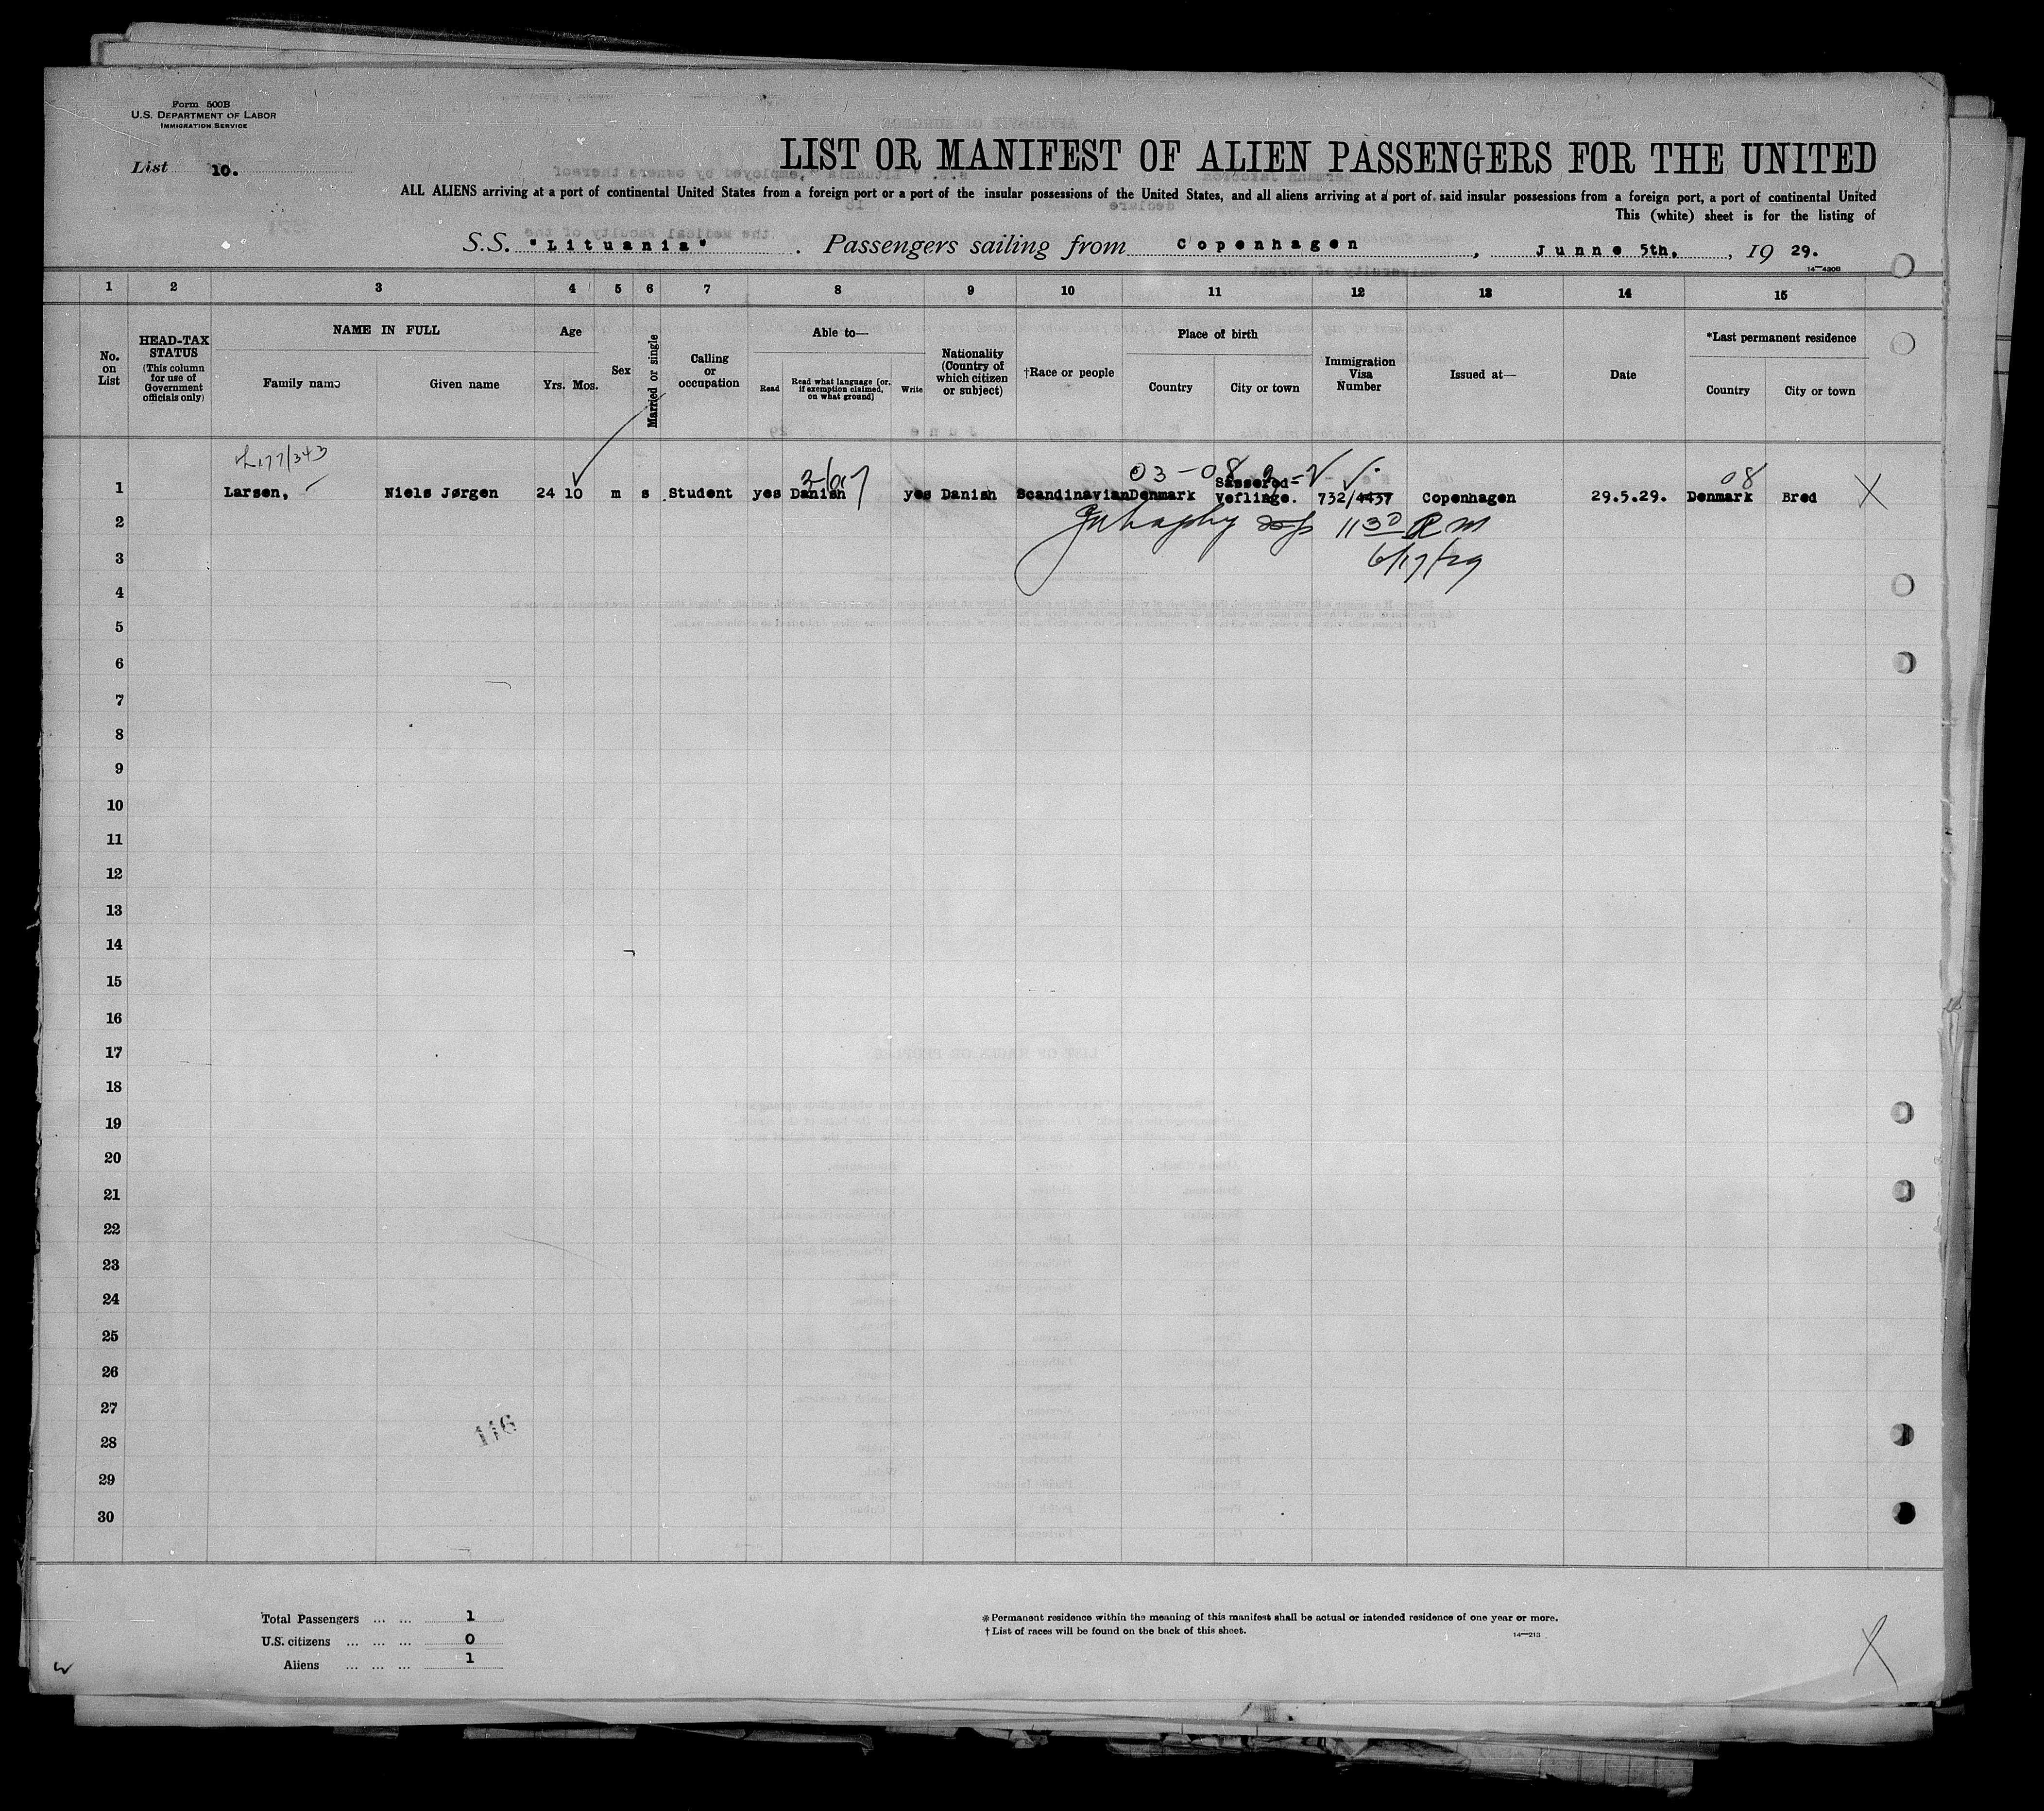 Form 500B
U.S. DEPARTMENT OF LABOR
IMMIGRATION SERVICE
List 10.
LIST OR MANIFEST OF ALIEN PASSENGERS FOR THE UNITED
ALL ALIENS arriving at a port of continental United States from a foreign port or a port of the insular possessions of the United States, and all aliens arriving at a port of said insular possessions from a foreign port, a port of continental United
This (white) sheet is for the listing of
S.S. "Lituania" . Passengers sailing from Copenhagen , Junne 5th, , 19 29.
14—430B
1 2 3 4 5 6 7 8 9 10 11 12 13 14 15
No. on List
HEAD-TAX STATUS (This column for use of Government officials only)
NAME IN FULL
Family name Given name
Age
Yrs. Mos.
Sex
Married or single
Calling or occupation
Able to—
Read Read what language [or, if exemption claimed, on what ground] Write
Nationality (Country of which citizen or subject)
†Race or people
Place of birth
Country City or town
Immigration Visa Number
Issued at—
Date
*Last permanent residence
Country City or town
03-08 08
1 Larsen, Niels Jørgen 24 10 m s Student yes Danish yes Danish Scandinavian Denmark Sasserod= Veflinge. 732/4437 Copenhagen 29.5.29. Denmark Bred X
2 1130 P M
3 6/17/29
4
5
6
7
8
9
10
11
12
13
14
15
16
17
18
19
20
21
22
23
24
25
26
27
28
29
30
116
Total Passengers ... ... 1
U.S. citizens ... ... ... 0
Aliens ... ... ... 1
* Permanent residence within the meaning of this manifest shall be actual or intended residence of one year or more.
† List of races will be found on the back of this sheet.
14—213
X